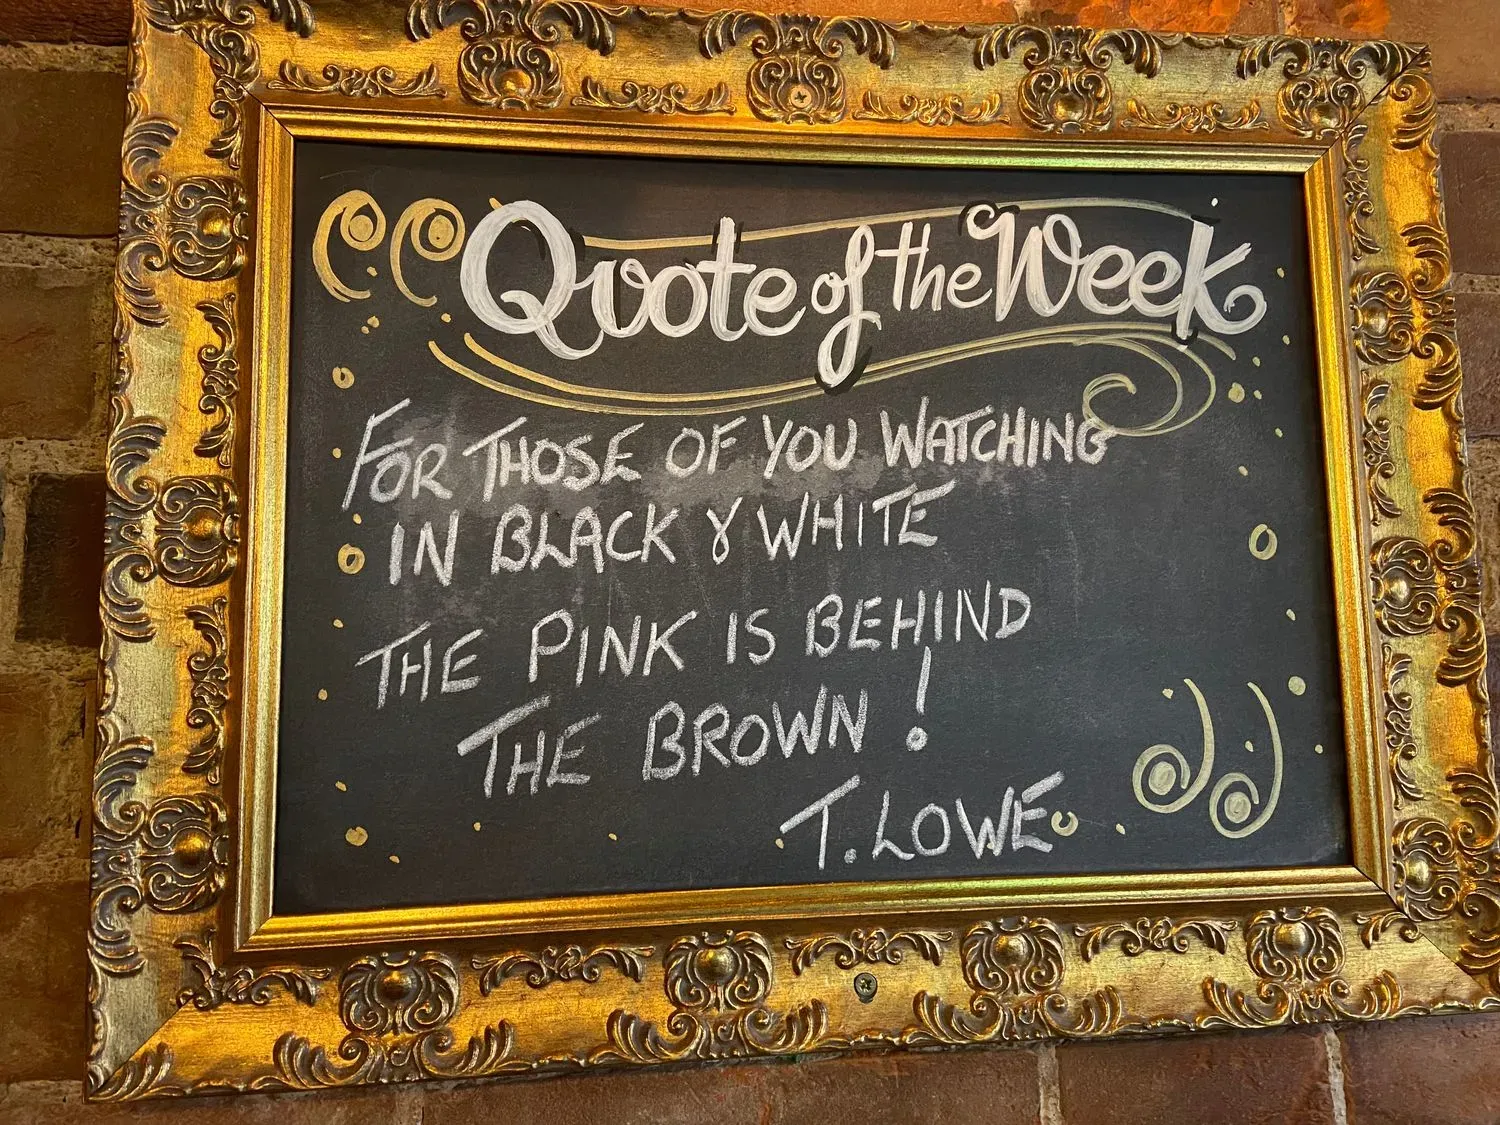 Quote of the Week
FOR THOSE OF YOU WATCHING
IN BLACK & WHITE
THE PINK IS BEHIND
THE BROWN!
T. LOWE